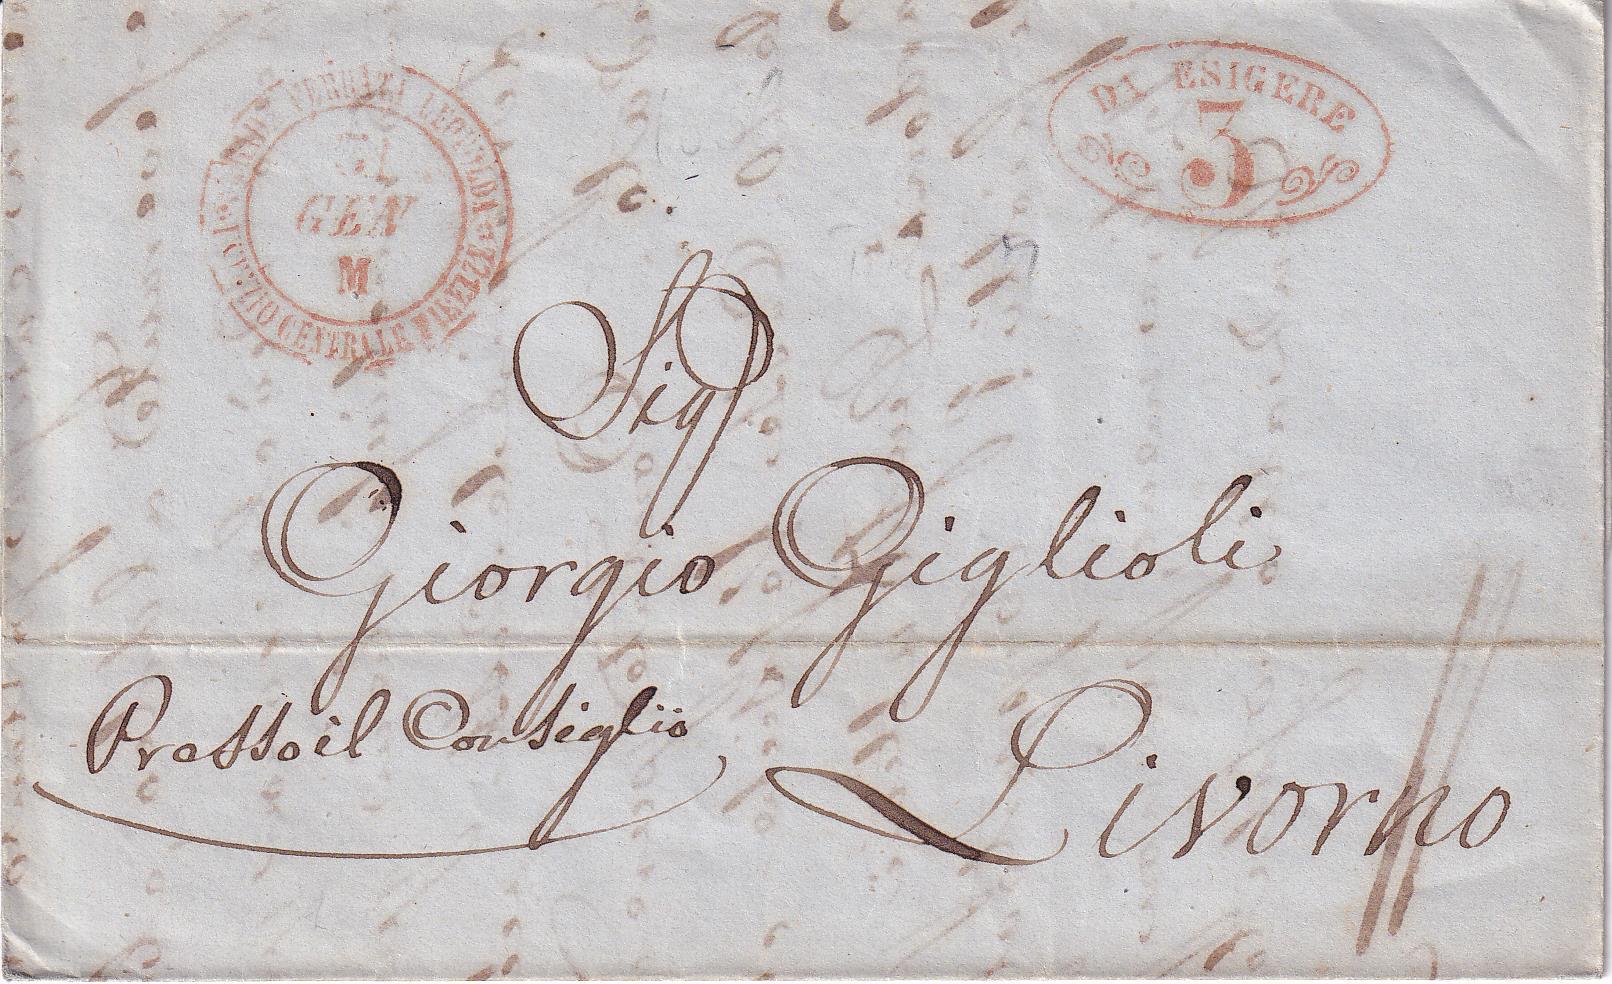 STRADE FERRATE LEOPOLDA
UFFIZIO CENTRALE FIRENZE
GEN
M
DA ESIGERE
3
Sigr
Giorgio Giglioli
Presso il Consiglio
Livorno